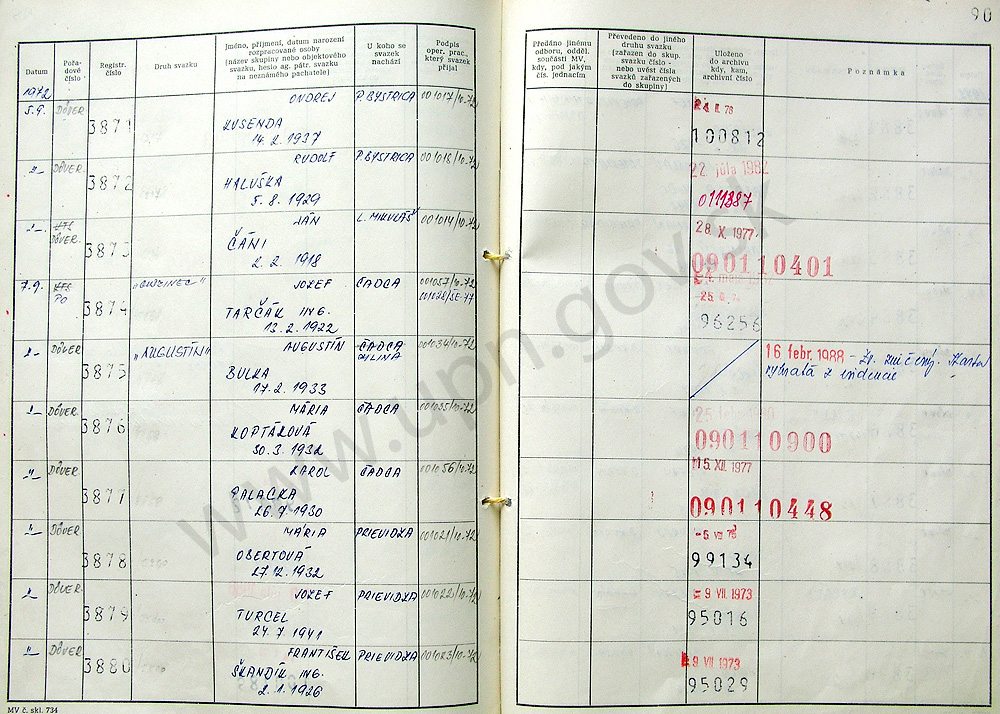 90
Datum
Pořadové číslo
Registr. číslo
Druh svazku
Jméno, příjmení, datum narození rozpracované osoby (název skupiny nebo objektového svazku, heslo ag. pátr. svazku na neznámého pachatele)
U koho se svazek nachází
Podpis oper. prac., který svazek přijal
Předáno jinému odboru, odděl. součásti MV, kdy, pod jakým čís. jednacím
Převedeno do jiného druhu svazku (zařazen do skup. svazku číslo - nebo uvést čísla svazků zařazených do skupiny)
Uloženo do archivu kdy, kam, archivní číslo
Poznámka
1972
5.9. DÔVER. 3871 ONDREJ P. BYSTRICA 001017/10-72
KUSENDA
14. 2. 1937
100812
" DÔVER. 3872 RUDOLF P. BYSTRICA 001018/10-72 22. júla 1982
HALUŠKA
5. 8. 1929
011387
" DÔVER. 3873 JÁN L. MIKULÁŠ 001014/10-72 28. X. 1977
ČÁNI
2. 2. 1918
090110401
7.9. PO 3874 JOZEF ČADCA 001057/10-72
TARČÁK ING.
13. 2. 1922
96256
" DÔVER 3875 „AUGUSTÍN" AUGUSTÍN ČADCA ŽILINA 001034/10-72 16 febr. 1988 - Zv. zničený. Karta
BULKA vybratá z evidencie
17. 2. 1933
" DÔVER. 3876 MÁRIA ČADCA 001035/10-72
KOPTÁKOVÁ
30. 3. 1932
090110900
" DÔVER 3877 KAROL ČADCA 001056/10-72 15. XII. 1977
PALAČKA
26. 7. 1930
090110448
" DÔVER. 3878 MÁRIA PRIEVIDZA 001021/10-72
OBERTOVÁ
27. 12. 1932
99134
" DÔVER. 3879 JOZEF PRIEVIDZA 001022/10-72 9 VII. 1973
TURCEL
24. 7. 1941
95016
" DÔVER. 3880 FRANTIŠEK PRIEVIDZA 001023/10-72 9 VII. 1973
ŠKANDÍK ING.
2. 1. 1926
95029
MV č. skl. 734
www.upn.gov.sk